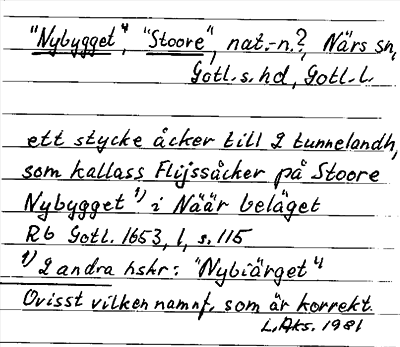 "Nybygget", "Stoore", nat.-n.?, Närs sn,
Gotl. s. hd, Gotl. l.
ett stycke åcker till 2 tunnelandh,
som kallass Flijssåcker på Stoore
Nybygget 1) i Näär beläget
Rb Gotl. 1653, 1, s. 115
1) 2 andra hskr: "Nybiärget"
Ovisst vilken namnf. som är korrekt.
L. Aks. 1981